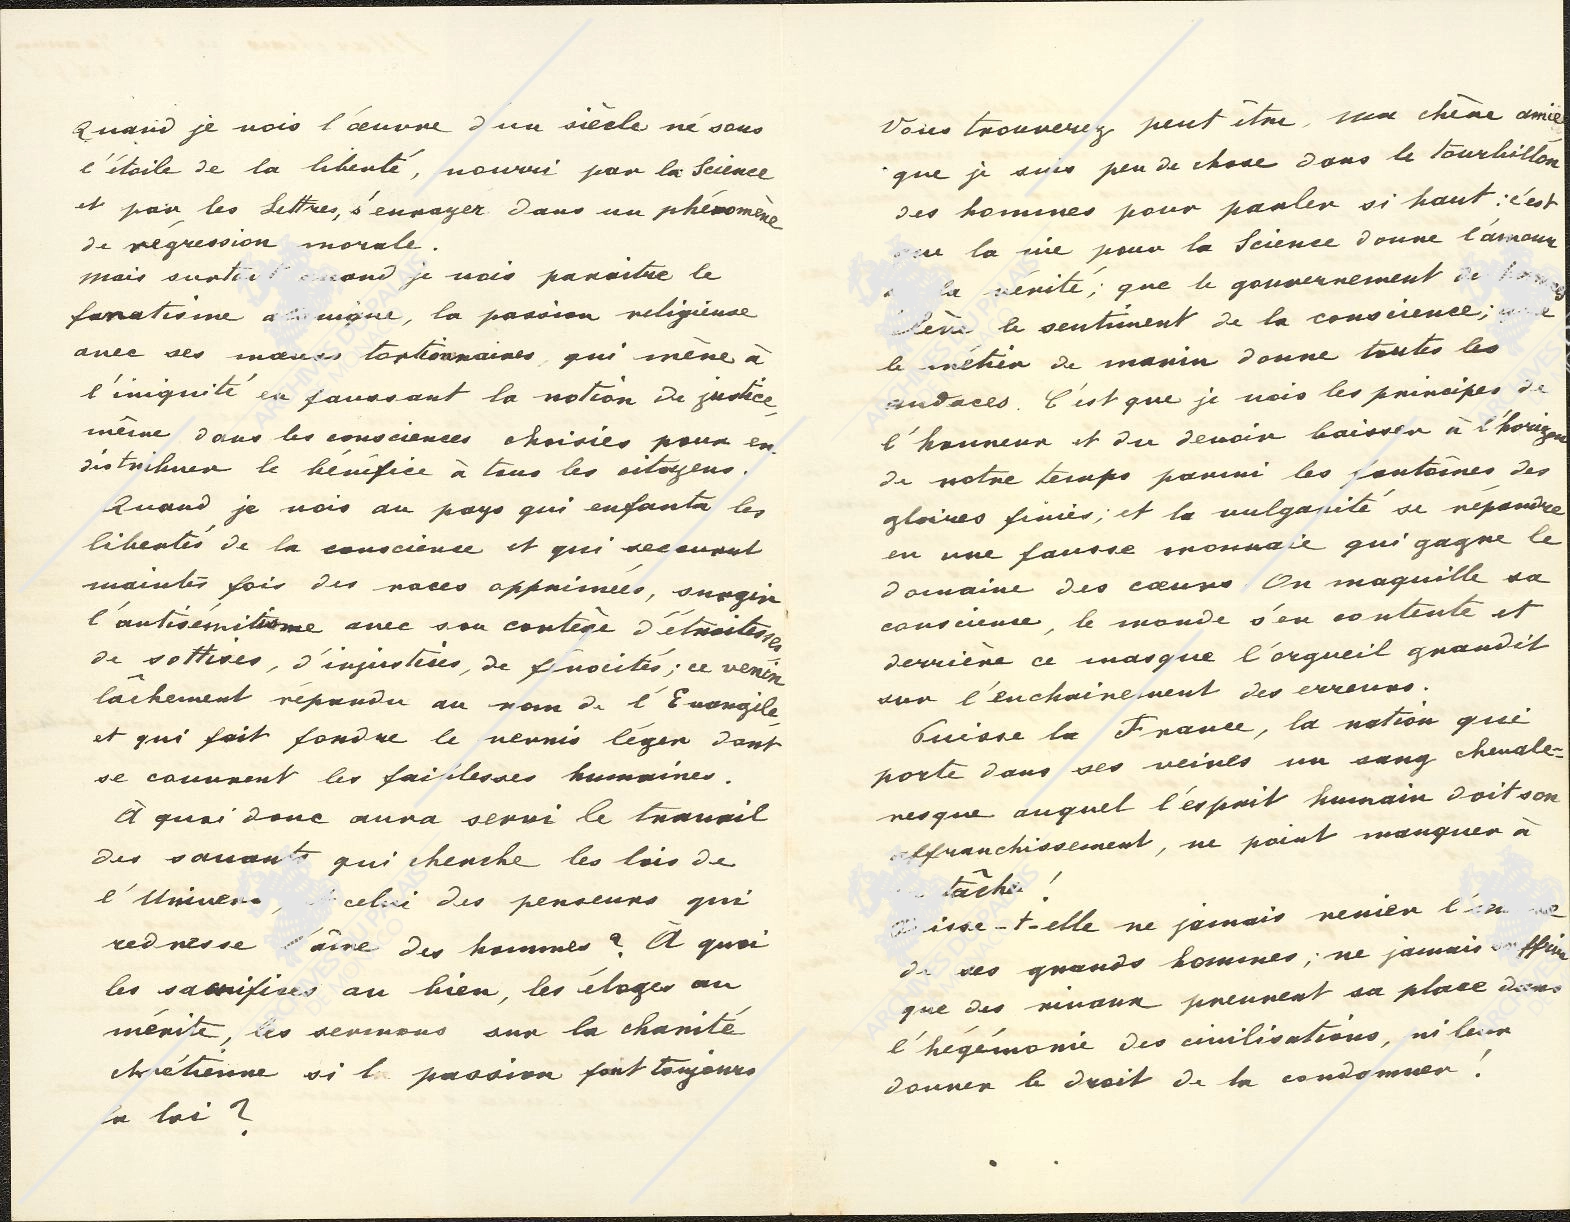 Quand je vois l'œuvre d'un siècle né sous
l'étoile de la liberté, nourri par la Science
et par les Lettres, s'enrayer dans un phénomène
de régression morale.
Mais surtout quand je vois paraitre le
fanatisme, la passion religieuse
avec ses mœurs tortionnaires qui mène à
l'iniquité en faussant la notion de justice,
même dans les consciences choisies pour en
distribuer le bénéfice à tous les citoyens.
Quand je vois au pays qui enfanta les
libertés de la conscience et qui secourut
maintes fois des races opprimées, surgir
l'antisémitisme avec son cortège d'étroitesses
de sottises, d'injustices, de férocités; ce venin
lâchement répandu au nom de l'Evangile
et qui fait fondre le vernis léger dont
se couvrent les faiblesses humaines.
À quoi donc aura servi le travail
des savants qui cherche les lois de
l'Univers, et celui des penseurs qui
redresse l'âme des hommes? À quoi
les sacrifices au bien, les éloges au
mérite, les sermons sur la charité
chrétienne si la passion font toujours
la loi?
Vous trouverez peut être, ma chère amie
que je suis peu de chose dans le tourbillon
des hommes pour parler si haut: c'est
que la vie pour la Science donne l'amour
de la vérité; que le gouvernement des hommes
élève le sentiment de la conscience; que
le métier de marin donne toutes les
audaces. C'est que je vois les principes de
l'honneur et du devoir baisser à l'horizon
de notre temps parmi les fantômes des
gloires finies; et la vulgarité se répandre
en une fausse monnaie qui gagne le
domaine des cœurs. On maquille sa
conscience, le monde s'en contente et
derrière ce masque l'orgueil grandit
sur l'enchainement des erreurs.
Puisse la France, la nation qui
porte dans ses veines un sang chevale-
resque auquel l'esprit humain doit son
affranchissement, ne point manquer à
sa tâche!
Puisse-t-elle ne jamais renier l'œuvre
de ses grands hommes; ne jamais souffrir
que des rivaux prennent sa place dans
l'hégémonie des civilisations, ni leur
donner le droit de la condamner!